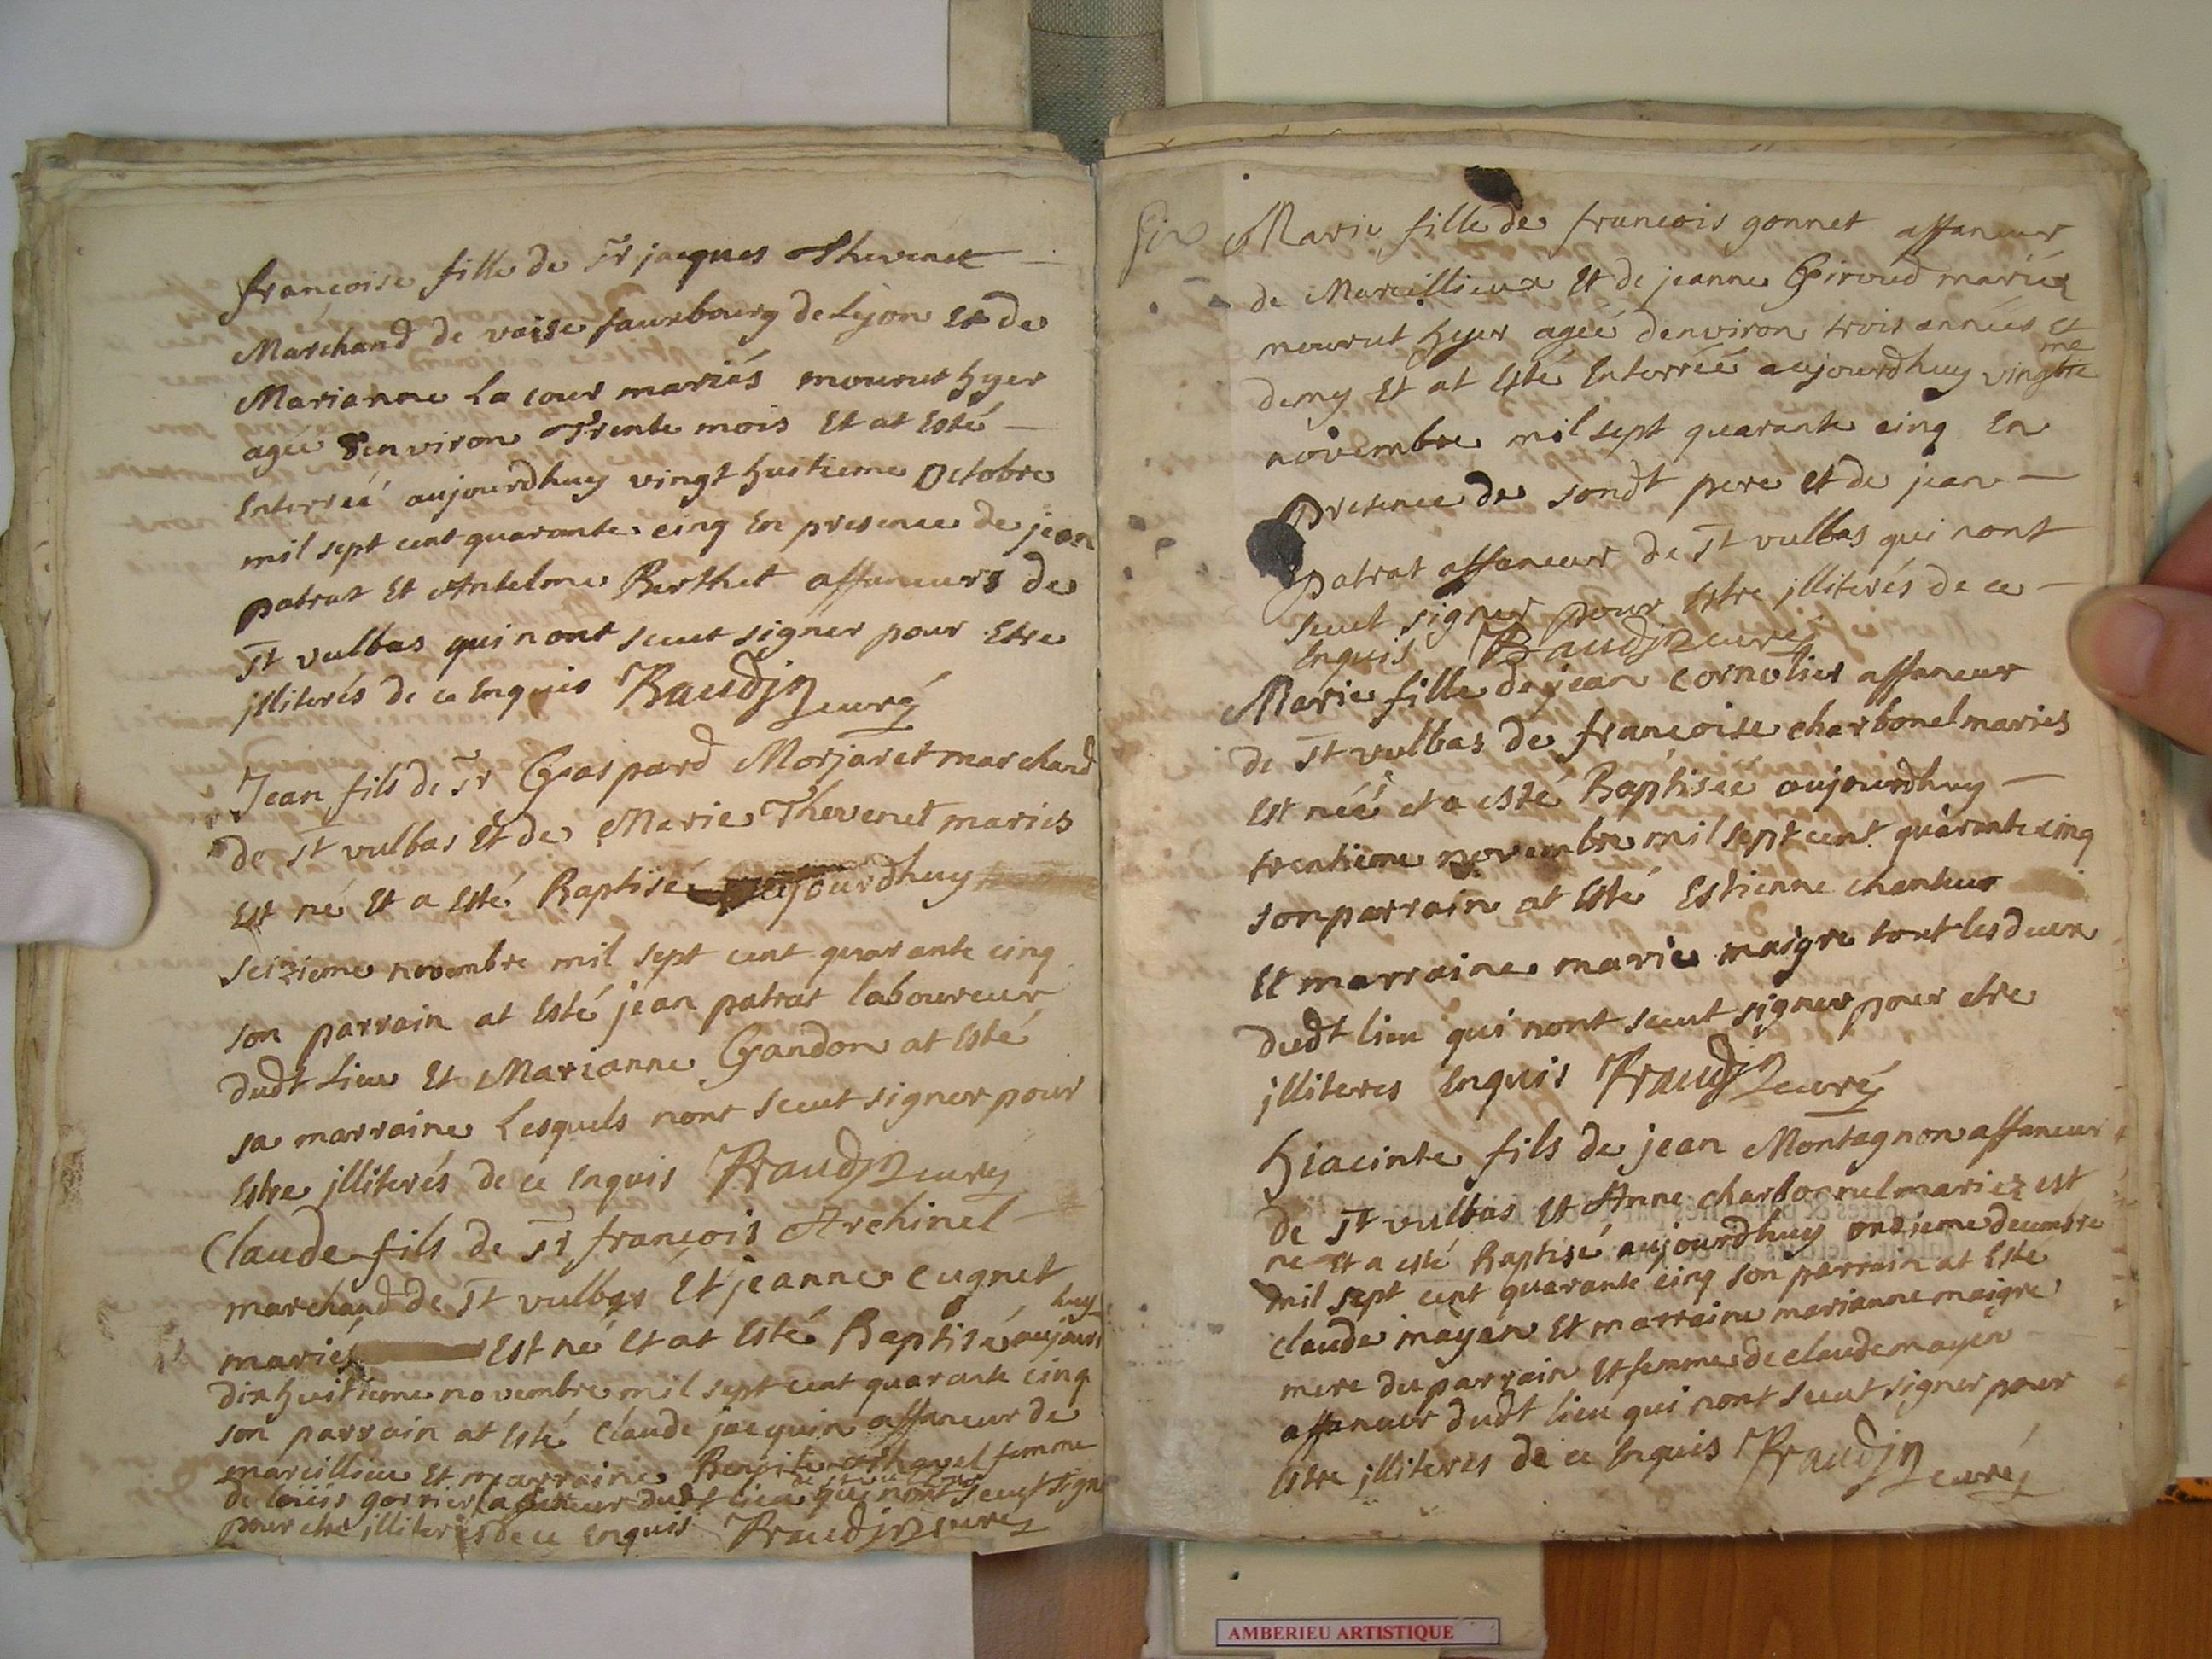 françoise fille de Sr jacques Thevenet
Marchand de vaise faurbourg de Lyon Et de
Marianne La cour mariés mourut hyer
agée denviron Trente mois Et at Esté
Enterréé aujourdhuy vingt huitieme Octobre
mil sept cent quarante cinq En presence de jean
patrat Et Antelme Berthet affaneurs de
St vulbas qui nont sceut signer pour Etre
jlliterés de ce Enquis Baudin curé
Jean fils de Sr Gaspard Morjaret marchand
de St vulbas Et de Marie Thevenet mariés
Est né Et a Esté Baptisé aujourdhuy
seizieme novembre mil sept cent quarante cinq
son parrain at Esté jean patrat laboureur
dudt Lieu Et Marianne Gandon at Esté
sa marraine Lesquels nont sceut signer pour
Estre jlliterés de ce Enquis Baudin curé
Claude fils de Sr françois Archinel
marchand de St vulbas Et jeanne Cugnet
mariés Est né Et at Esté Baptisé aujourd
huy
dixhuitieme novembre mil sept cent quarante cinq
son parrain at Esté Claude jacquin affaneur de
marcillieu Et marraine femme
de loüis affaneur dudt lieu qui nont sceut signe
pour etre jlliterés de ce Enquis Baudin curé
Marie fille de francois gonnet affaneur
de Marcillieux Et de jeanne Giroud mariéz
mourut hyer agéé denviron trois années Et
demy Et at Esté Enterréé aujourdhuy vingtie
me
novembre mil sept quarante cinq En
Presence de sondt pere Et de jean
Patrat affaneur de St vulbas qui nont
sceut signer pour Estre jlliterés de ce
Enquis Baudin curé
Marie fille de jean Cornelier affaneur
de St vulbas de françoise charbonel mariés
Est néé et a esté Baptiséé aujourdhuy
trentieme novembre mil sept cent quarante cinq
son parrain at Esté Estienne chanteur
Et marraine marie maigre tout les deux
dudt lieu qui nont sceut signer pour etre
jlliteres Enquis Baudin curé
Hiacinte fils de jean Montagnon affaneur
de St vulbas Et Anne charbonnel mariez est
ne Et a esté Baptisé aujourdhuy onzieme decembre
mil sept cent quarante cinq son parrain at Esté
claude mayen Et marraine marianne maigre
mere du parrain Et femme de claude mayen
affaneur dudt lieu qui nont sceut signer pour
Estre jlliteres de ce Enquis Baudin curé
AMBERIEU ARTISTIQUE